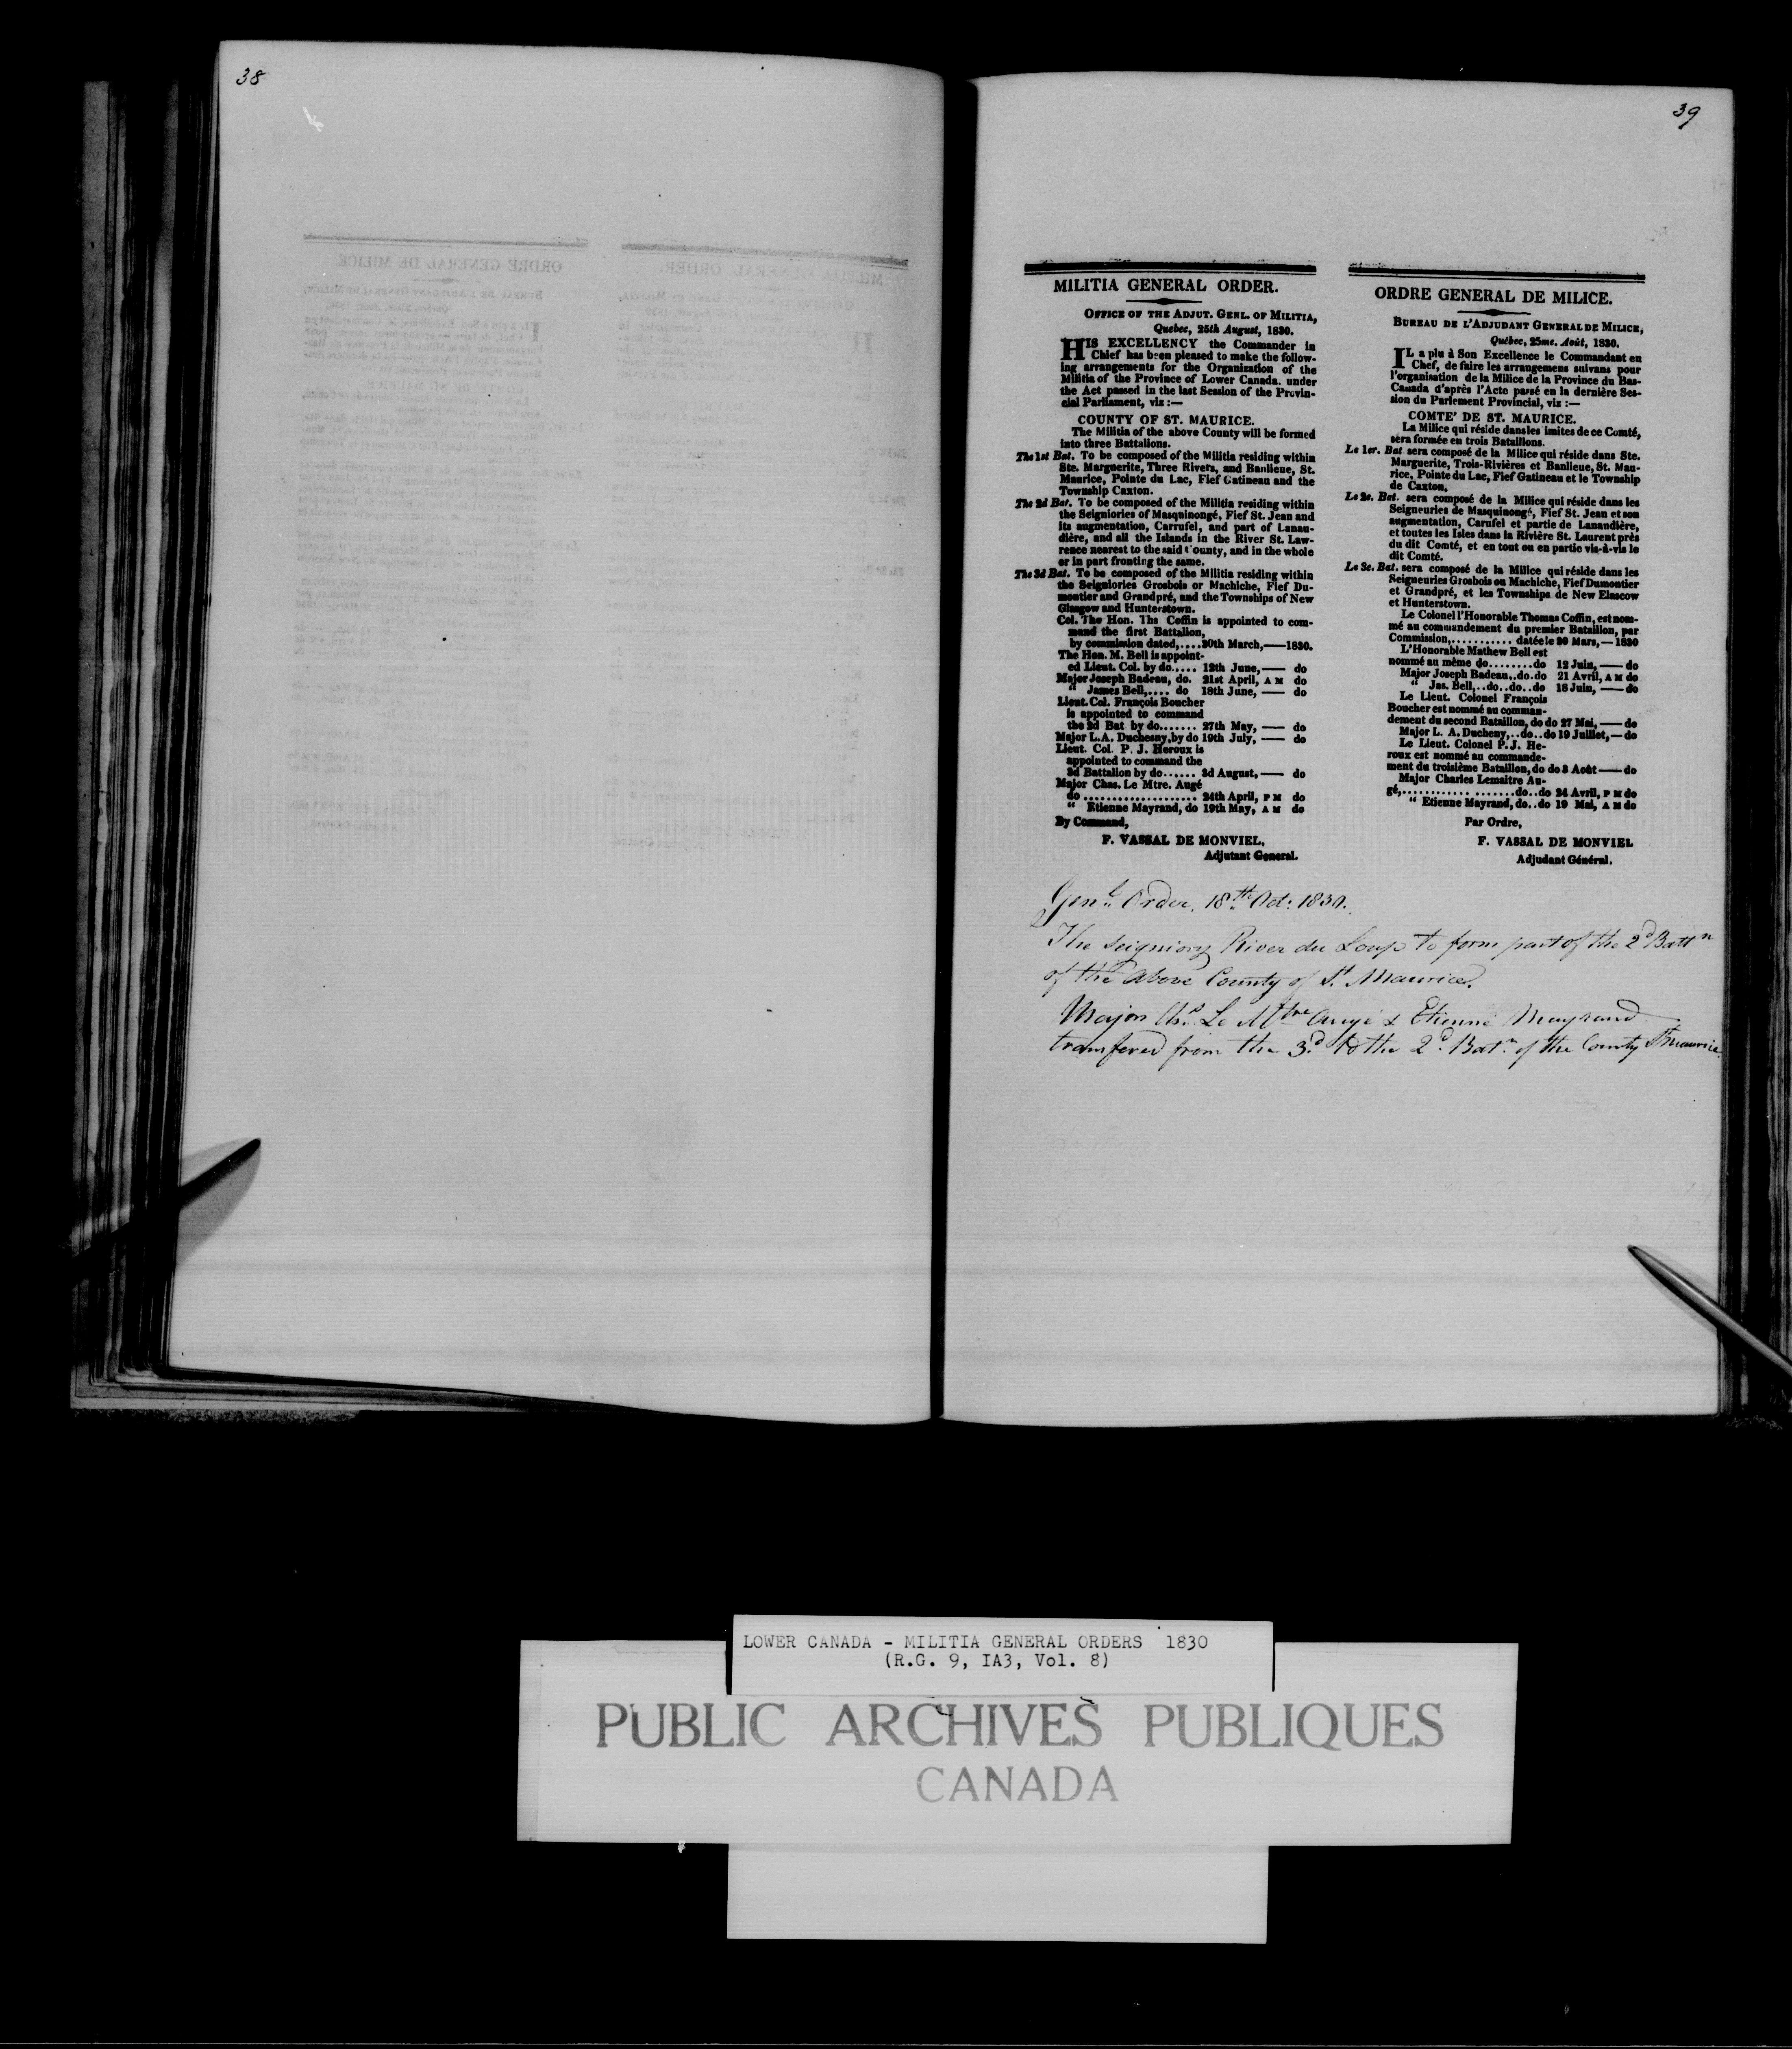 38
39
MILITIA GENERAL ORDER.
OFFICE OF THE ADJUT. GENL. OF MILITIA,
Quebec, 25th August, 1830.
HIS EXCELLENCY the Commander in
Chief has been pleased to make the follow-
ing arrangements for the Organization of the
Militia of the Province of Lower Canada. under
the Act passed in the last Session of the Provin-
cial Parliament, viz :—
COUNTY OF ST. MAURICE.
The Militia of the above County will be formed
into three Battalions.
The 1st Bat. To be composed of the Militia residing within
Ste. Marguerite, Three Rivers, and Banlieue, St.
Maurice, Pointe du Lac, Fief Gatineau and the
Township Caxton.
The 2d Bat. To be composed of the Militia residing within
the Seigniories of Masquinongé, Fief St. Jean and
its augmentation, Carrufel, and part of Lanau-
dière, and all the Islands in the River St. Law-
rence nearest to the said County, and in the whole
or in part fronting the same.
The 3d Bat. To be composed of the Militia residing within
the Seigniories Grosbois or Machiche, Fief Du-
montier and Grandpré, and the Townships of New
Glasgow and Hunterstown.
Col. The Hon. Ths Coffin is appointed to com-
mand the first Battalion,
by commission dated,....30th March,——1830.
The Hon. M. Bell is appoint-
ed Lieut. Col. by do..... 12th June,—— do
Major Joseph Badeau, do. 21st April, A M do
“ James Bell,.... do 18th June, —— do
Lieut. Col. François Boucher
is appointed to command
the 2d Bat by do....... 27th May, —— do
Major L.A. Duchesny,by do 19th July, —— do
Lieut. Col. P. J. Heroux is
appointed to command the
3d Battalion by do...... 3d August, —— do
Major Chas. Le Mtre. Augé
do .................... 24th April, P M do
“ Etienne Mayrand, do 19th May, A M do
By Command,
F. VASSAL DE MONVIEL,
Adjutant General.
ORDRE GENERAL DE MILICE.
BUREAU DE L'ADJUDANT GENERAL DE MILICE,
Québec, 25me. Août, 1830.
IL a plu à Son Excellence le Commandant en
Chef, de faire les arrangemens suivans pour
l'organisation de la Milice de la Province du Bas-
Canada d'après l'Acte passé en la dernière Ses-
sion du Parlement Provincial, viz :—
COMTE' DE ST. MAURICE.
La Milice qui réside dans les imites de ce Comté,
sera formée en trois Bataillons.
Le 1er. Bat sera composé de la Milice qui réside dans Ste.
Marguerite, Trois-Rivières et Banlieue, St. Mau-
rice, Pointe du Lac, Fief Gatineau et le Township
de Caxton,
Le 2e. Bat. sera composé de la Milice qui réside dans les
Seigneuries de Masquinongé, Fief St. Jean et son
augmentation, Carufel et partie de Lanaudière,
et toutes les Isles dans la Rivière St. Laurent près
du dit Comté, et en tout ou en partie vis-à-vis le
dit Comté.
Le 3e. Bat. sera composé de la Milice qui réside dans les
Seigneuries Grosbois ou Machiche, Fief Dumontier
et Grandpré, et les Townships de New Elascow
et Hunterstown.
Le Colonel l'Honorable Thomas Coffin, est nom-
mé au commandement du premier Bataillon, par
Commission,........... datée le 30 Mars,—1830
L'Honorable Mathew Bell est
nommé au même do........do 12 Juin, —— do
Major Joseph Badeau..do.do 21 Avril, A M do
“ Jas. Bell,..do..do..do 18 Juin, —— do
Le Lieut. Colonel François
Boucher est nommé au comman-
dement du second Bataillon, do do 27 Mai, —— do
Major L. A. Ducheny,..do..do 19 Juillet,— do
Le Lieut. Colonel P. J. He-
roux est nommé au commande-
ment du troisième Bataillon, do do 3 Août —— do
Major Charles Lemaitre Au-
gé,................... do..do 24 Avril, P M do
“ Etienne Mayrand, do..do 19 Mai, A M do
Par Ordre,
F. VASSAL DE MONVIEL
Adjudant Général.
Genl. Order, 18th Oct: 1830.
The Seigniory River du Loup to form part of the 2d Battn
of the above County of St. Maurice.
Majors Chs. Le Mtre Augé & Etienne Mayrand
transfered from the 3d. to the 2d. Batn. of the County St Maurice.
LOWER CANADA - MILITIA GENERAL ORDERS 1830
(R.G. 9, IA3, Vol. 8)
PUBLIC ARCHIVES PUBLIQUES
CANADA